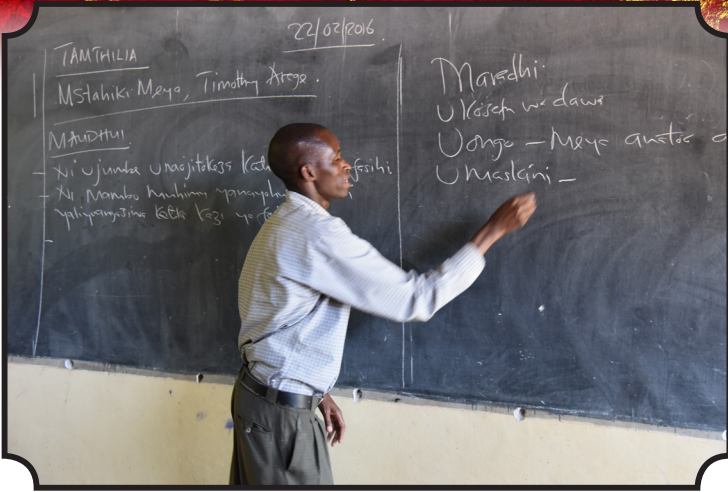 22/02/2016.
TAMTHILIA
Mstahiki Meya, Timothy Arege.
MAUDHUI
- Ni ujumbe unaojitokeza fasihi
- Ni Mambo muhimu
yaliyoangaziwa katika kazi ya
Maradhi
Ukosefu wa dawa
Uongo - Meya anatoa
Umaskini -